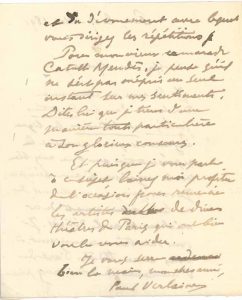 et du dévouement avec lequel
vous dirigez les répétitions.
Pour mon vieux camarade
Catulle Mendès, je pense qu'il
ne s'est pas mépris un seul
instant sur mes sentiments.
Dites-lui que je tiens d'une
manière toute particulière
à son glorieux concours.
Et puisque je vous parle
à ce sujet laissez-moi profiter
de l'occasion pour remercier
les artistes de divers
théâtres de Paris qui ont bien
voulu vous aider.
Je vous serre
bien la main, mon cher ami,
Paul Verlaine